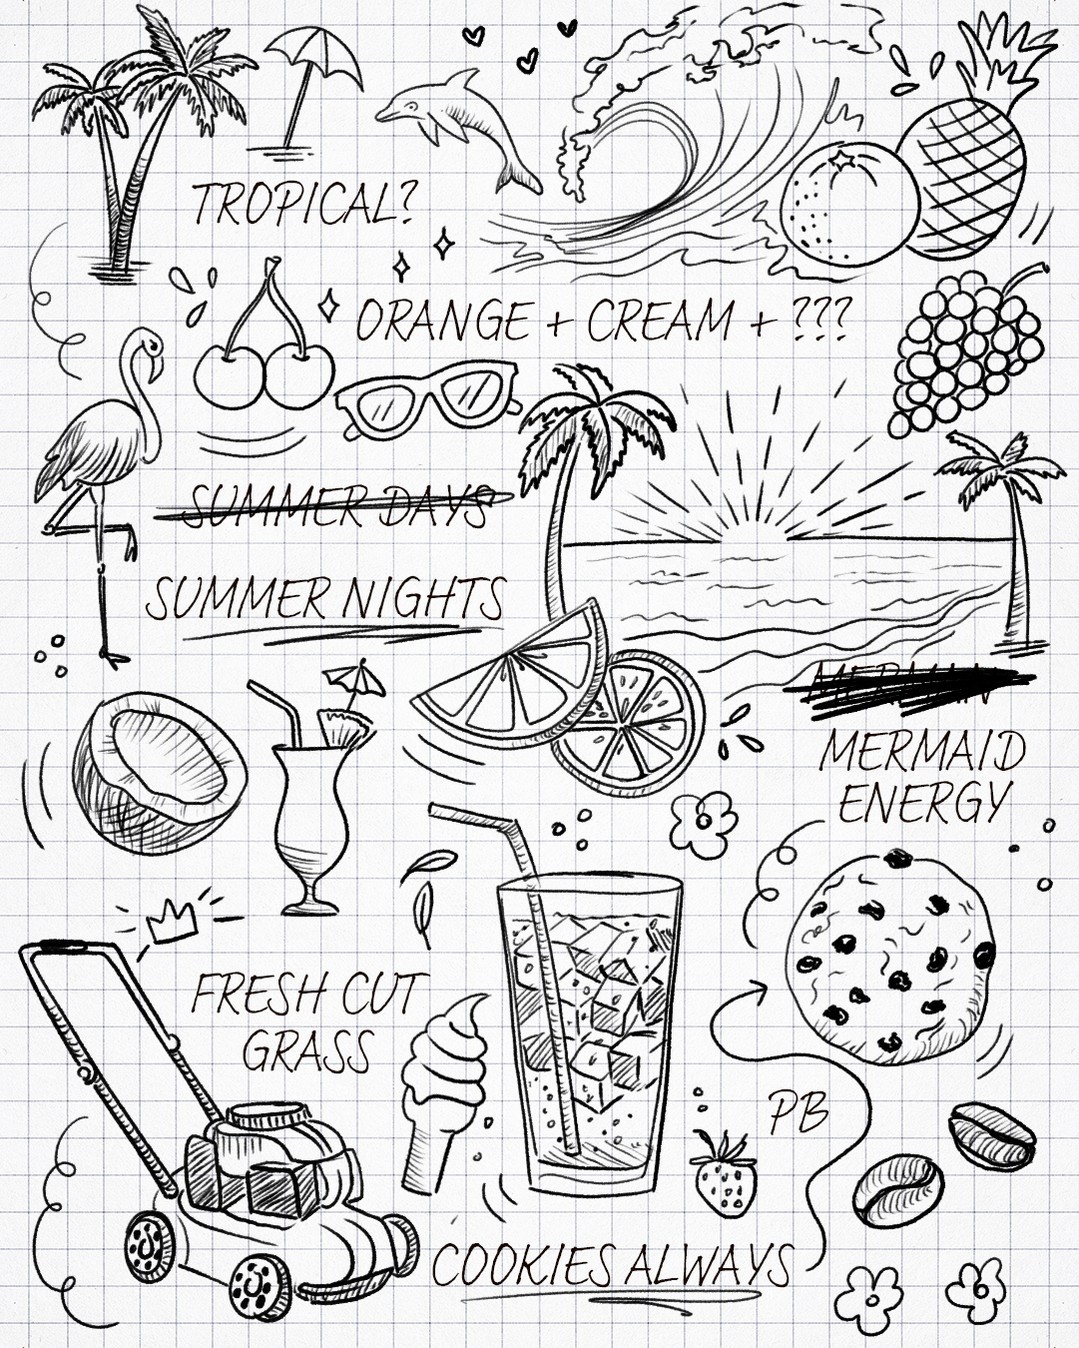 TROPICAL?
ORANGE + CREAM + ???
SUMMER DAYS
SUMMER NIGHTS
MERMAID
ENERGY
FRESH CUT
GRASS
PB
COOKIES ALWAYS